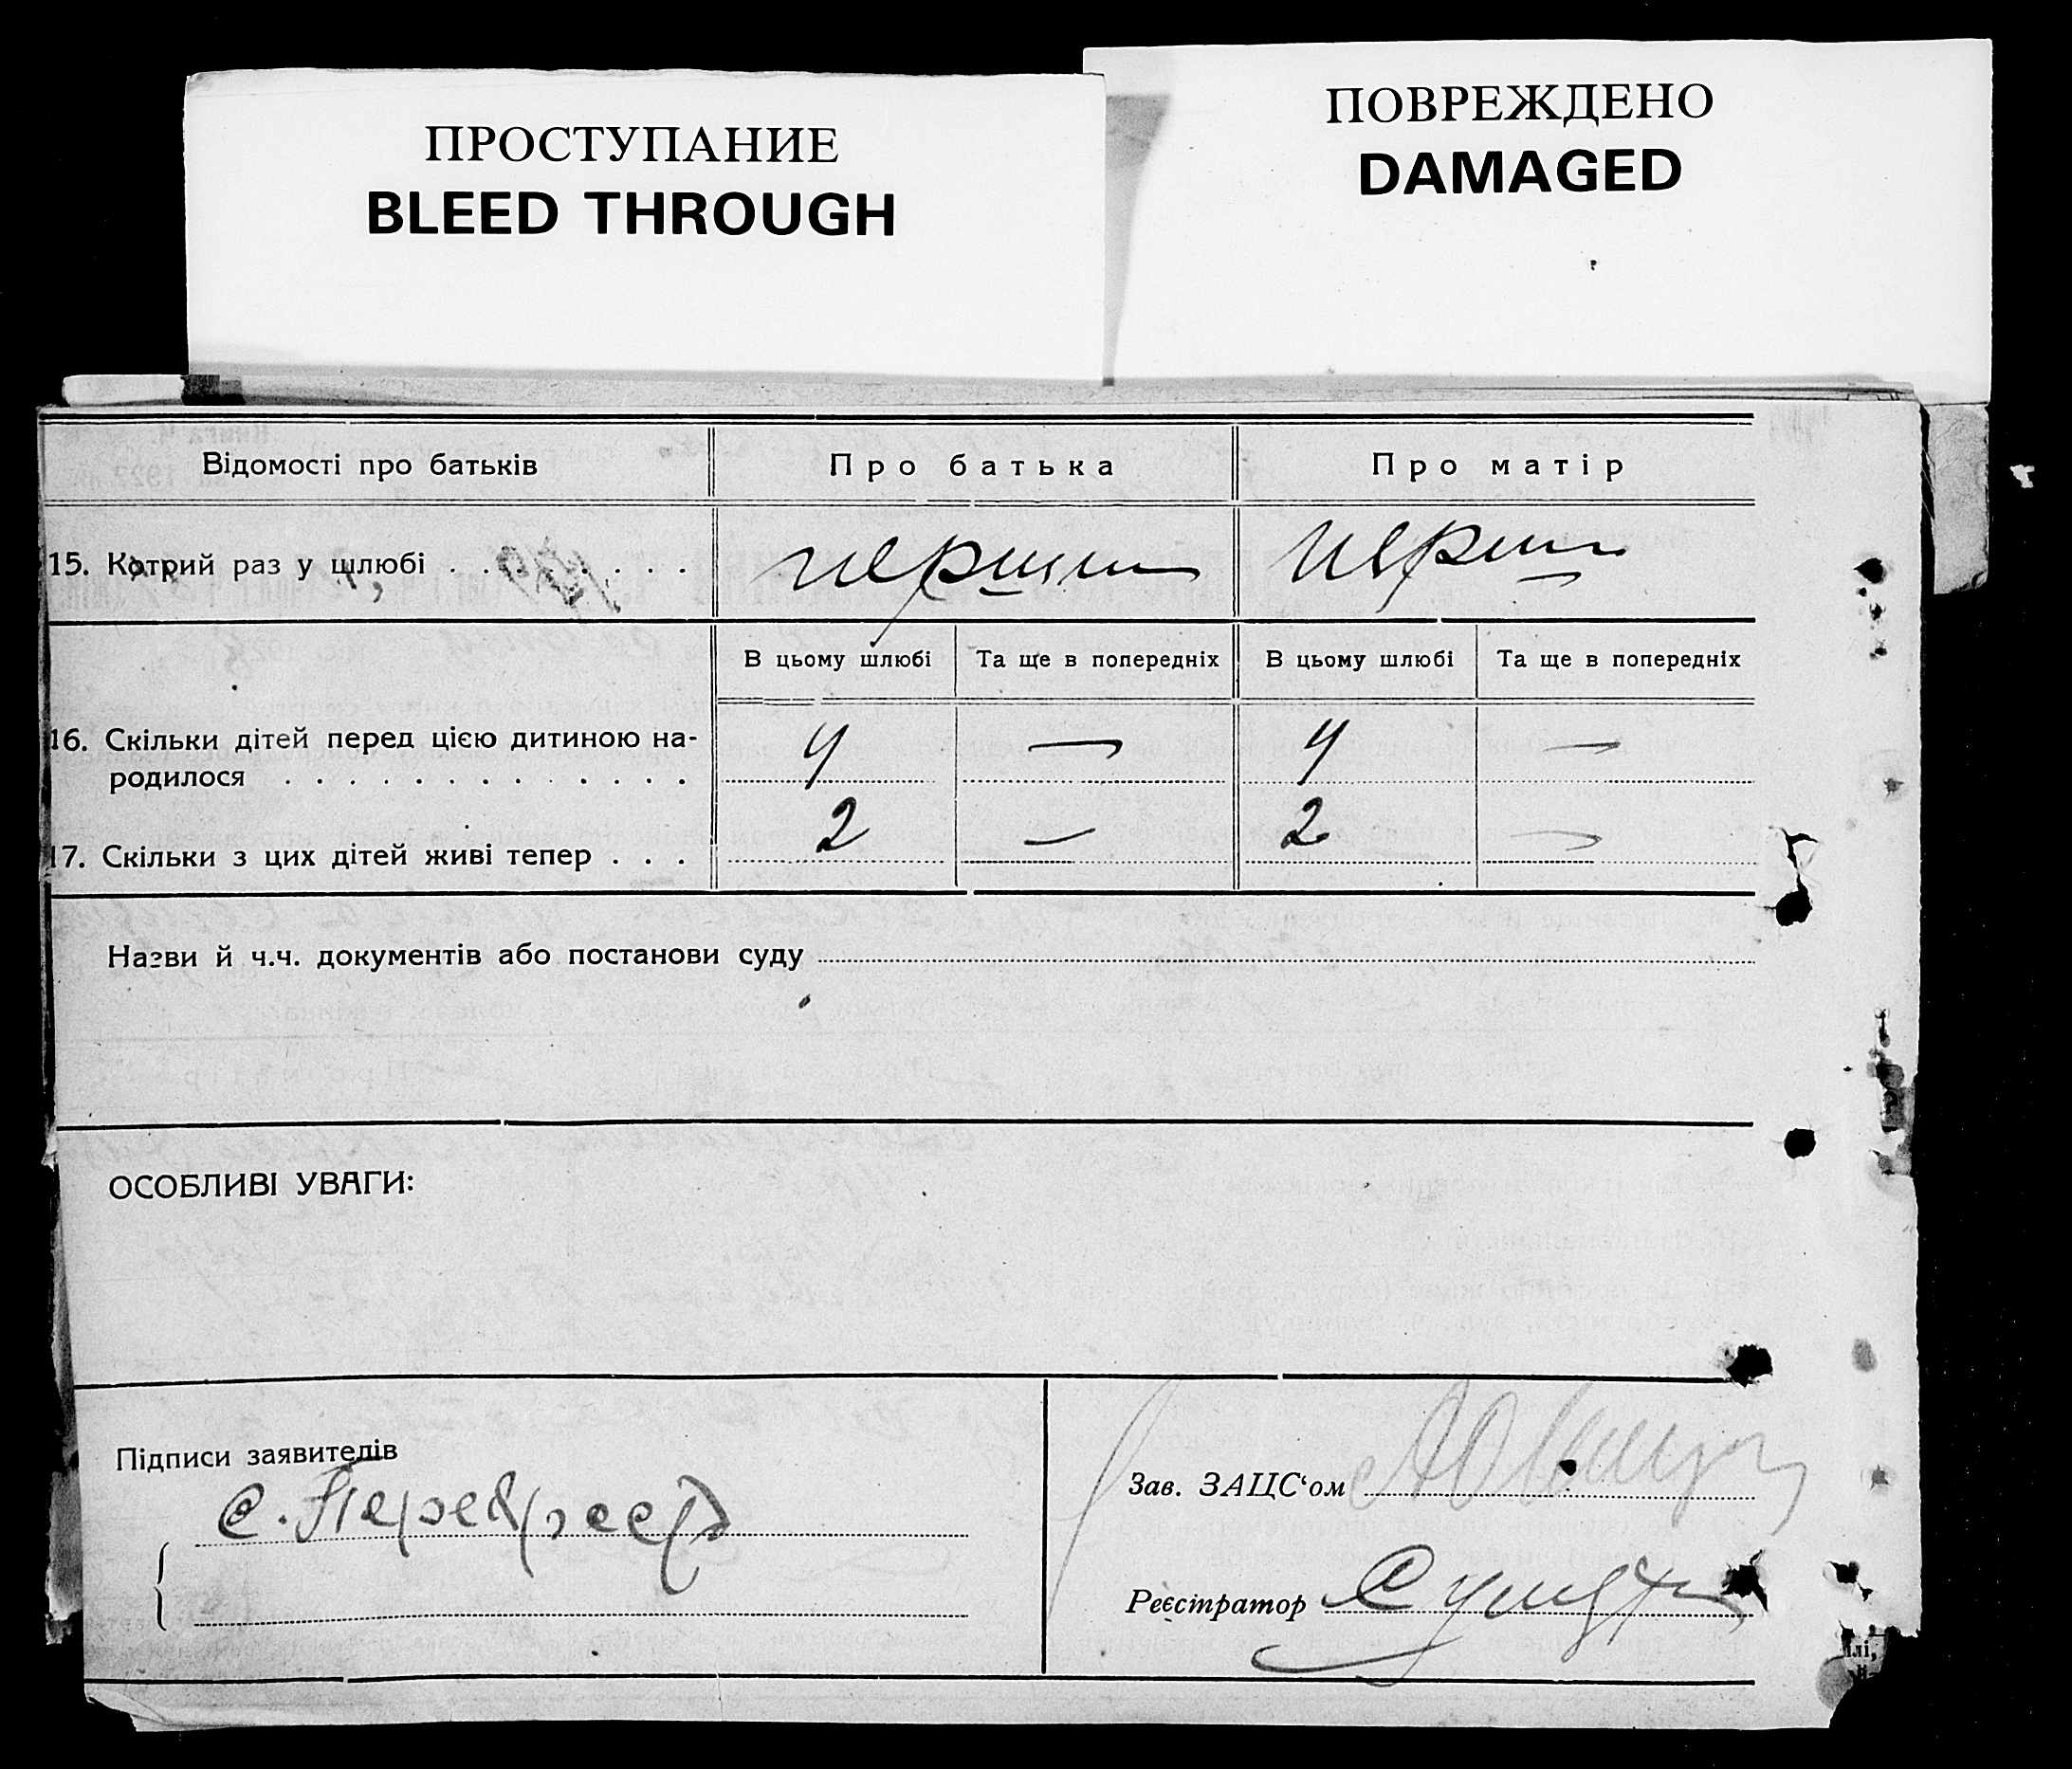 ПРОСТУПАНИЕ
BLEED THROUGH
ПОВРЕЖДЕНО
DAMAGED
Відомості про батьків
Про батька
Про матір
15. Котрий раз у шлюбі . . . . . . . .
перший
перши
В цьому шлюбі
Та ще в попередніх
В цьому шлюбі
Та ще в попередніх
16. Скільки дітей перед цією дитиною на-
родилося . . . . . . . . . . . . .
4 — 4 —
17. Скільки з цих дітей живі тепер . . .
2 — 2 —
Назви й ч.ч. документів або постанови суду
ОСОБЛИВІ УВАГИ:
Підписи заявителів
Зав. ЗАЦС‘ом
Реєстратор